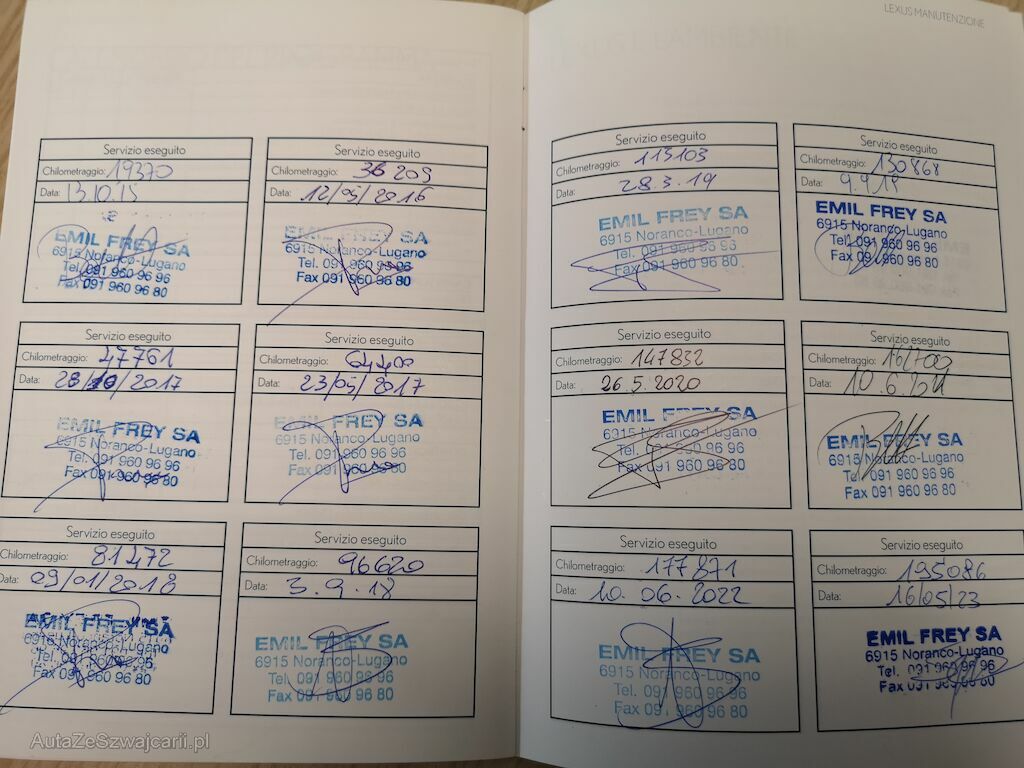 LEXUS MANUTENZIONE
Servizio eseguito
Chilometraggio: 19370
Data: 13.10.15
EMIL FREY SA
6915 Noranco-Lugano
Tel. 091 960 96 96
Fax 091 960 96 80
Servizio eseguito
Chilometraggio: 36 209
Data: 12/05/2016
EMIL FREY SA
6915 Noranco-Lugano
Tel. 091 960 96 96
Fax 091 960 96 80
Servizio eseguito
Chilometraggio: 47761
Data: 2017
EMIL FREY SA
6915 Noranco-Lugano
Tel. 091 960 96 96
Fax 091 960 96 80
Servizio eseguito
Chilometraggio: 64400
Data: 23/05/2017
EMIL FREY SA
6915 Noranco-Lugano
Tel. 091 960 96 96
Fax 091 960 96 80
Servizio eseguito
Chilometraggio: 81472
Data: 09/01/2018
EMIL FREY SA
6915 Noranco-Lugano
Tel. 091 960 96 96
Fax 091 960 96 80
Servizio eseguito
Chilometraggio: 96620
Data: 3.9.18
EMIL FREY SA
6915 Noranco-Lugano
Tel. 091 960 96 96
Fax 091 960 96 80
Servizio eseguito
Chilometraggio: 113103
Data: 28.3.19
EMIL FREY SA
6915 Noranco-Lugano
Tel. 091 960 96 96
Fax 091 960 96 80
Servizio eseguito
Chilometraggio: 130868
Data: 9.9.19
EMIL FREY SA
6915 Noranco-Lugano
Tel. 091 960 96 96
Fax 091 960 96 80
Servizio eseguito
Chilometraggio: 147832
Data: 26.5.2020
EMIL FREY SA
6915 Noranco-Lugano
Tel. 091 960 96 96
Fax 091 960 96 80
Servizio eseguito
Chilometraggio: 162700
Data: 10.6.2021
EMIL FREY SA
6915 Noranco-Lugano
Tel. 091 960 96 96
Fax 091 960 96 80
Servizio eseguito
Chilometraggio: 177871
Data: 10.06.2022
EMIL FREY SA
6915 Noranco-Lugano
Tel. 091 960 96 96
Fax 091 960 96 80
Servizio eseguito
Chilometraggio: 195086
Data: 16/05/23
EMIL FREY SA
6915 Noranco-Lugano
Tel. 091 960 96 96
Fax 091 960 96 80
AutaZeSzwajcarii.pl